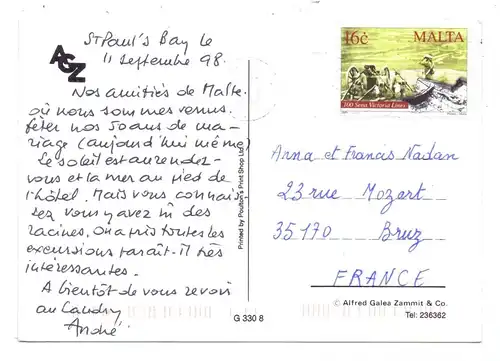 St Paul's Bay le
11 Septembre 98.
AGZ
Nos amitiés de Malte.
où nous sommes venus
fêter nos 50 ans de ma-
riage (aujourd'hui même)
Le soleil est au rendez-
vous et la mer au pied de
l'hôtel. Mais vous connais-
sez vous y avez mis des
racines. On a pris toutes les
excursions parait-il très
intéressantes.
A bientôt de vous revoir
au Landry
André
Printed by Poulton's Print Shop Ltd.
G 330 8
16c MALTA
100 Sena Victoria Lines
Anna et Francis Nadan
23 rue Mozart
35170 Bruz
FRANCE
© Alfred Galea Zammit & Co.
Tel: 236362